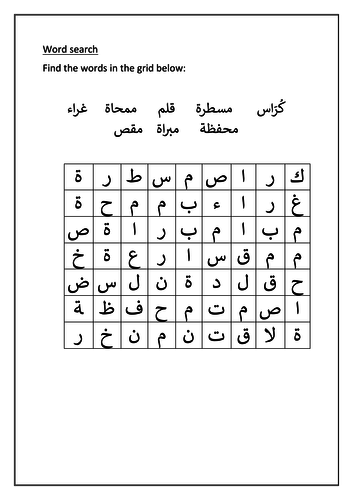 Word search
Find the words in the grid below:
كُرّاس مسطرة قلم ممحاة غراء
محفظة مبراة مقص
ك ر ا ص م س ط ر ة
غ ر ا ء ب م م ح ة
م ب ا م ب ر ا ة ص
م م ق س ا ر ع ة خ
ح ق ل د ة ن ل س ض
ا ص م ت م ح ف ظ ة
ة لا ق ت ن م ن خ ر